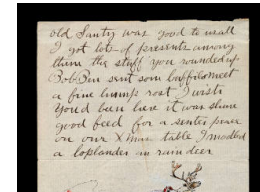 old Santy was good to us all
I got lots of presents among
them the stuff you rounded up
Bob Ben sent som buffilo meet
a fine hump rost I wish
Youd been here it was shure
good feed for a senter piece
on our X mas table I modled
a loplander in rain deer